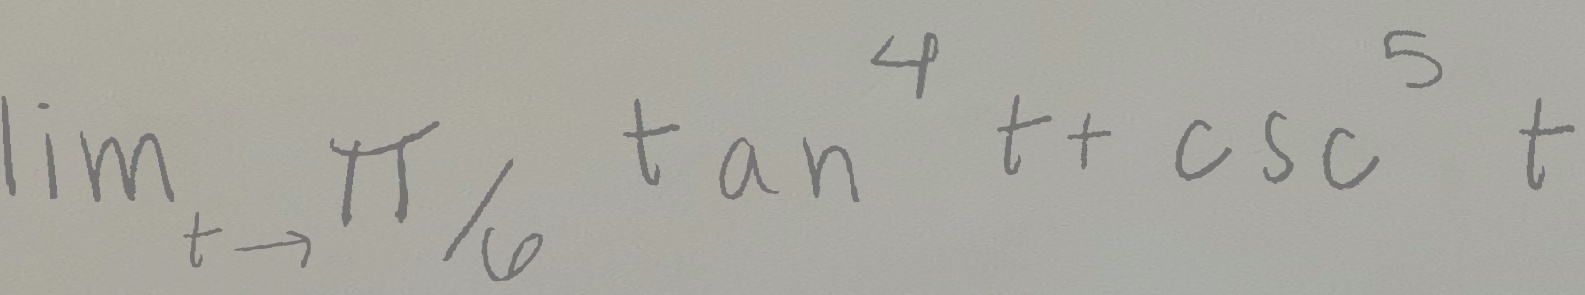 lim t→π/6 tan^4 t + csc^5 t